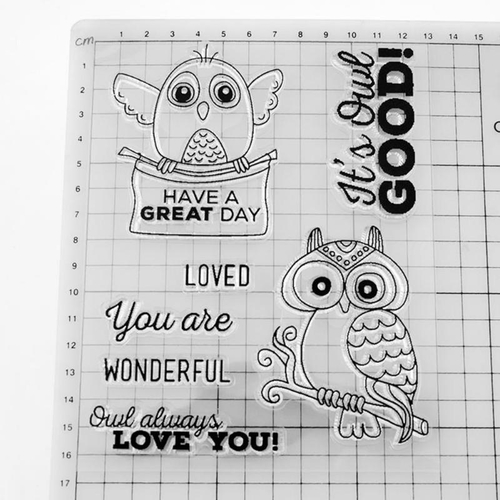 cm 1 2 3 4 5 6 7 8 9 10 11 12 13 14 15
1
2
3
4
5
6
7
8
9
10
11
12
13
14
15
16
17
HAVE A
GREAT DAY
It's Owl
GOOD!
LOVED
You are
WONDERFUL
Owl always
LOVE YOU!